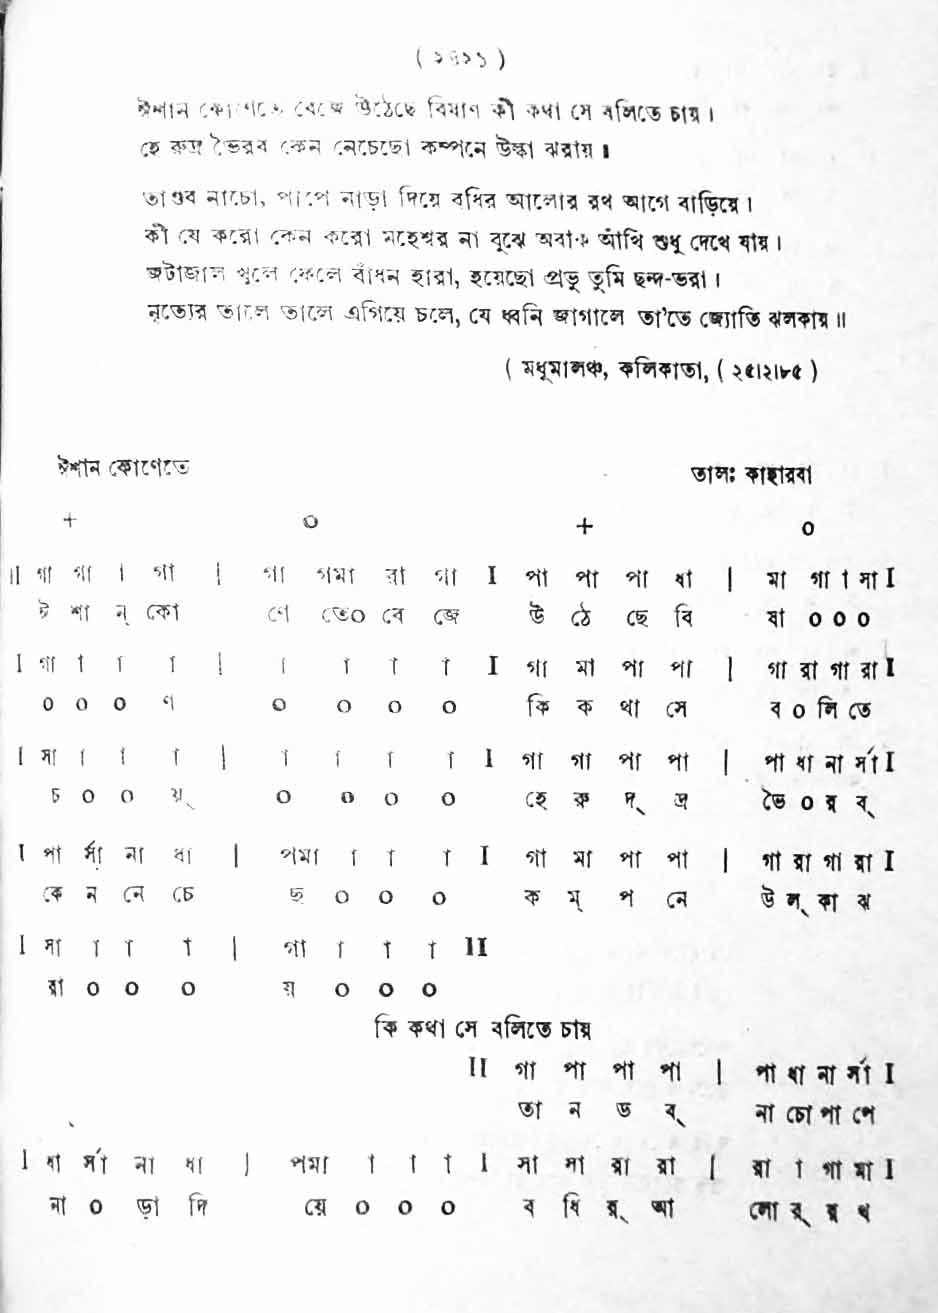 ঈশান কোণেতে বেজে উঠেছে বিষাণ কী কথা সে বলিতে চায় ।
হে রুদ্র ভৈরব কেন নেচেছো কম্পনে উল্কা ঝরায় ।
তাণ্ডব নাচো, পাপে নাড়া দিয়ে বধির আলোর রথ আগে বাড়িয়ে ।
কী যে করো কেন করো মহেশ্বর না বুঝে অবাক আঁখি শুধু দেখে যায় ।
জটাজাল খুলে ফেলে বাঁধন হারা, হয়েছো প্রভু তুমি ছন্দ-ভরা ।
নৃত্যের তালে তালে এগিয়ে চলে, যে ধ্বনি জাগালে তা'তে জ্যোতি ঝলকায় ॥
( মধুমালঞ্চ, কলিকাতা, ( ২৫।২।৮৫ )
ঈশান কোণেতে তালঃ কাহারবা
+ o + o
॥ গা গা া গা | গা গমা রা গা I পা পা পা ধা | মা গা া সা I
ঈ শা ন্ কো ণে তে০ বে জে উ ঠে ছে বি ষা ০ ০ ০
I গা া া া | া া া া I গা মা পা পা | গা রা গা রা I
০ ০ ০ ণ ০ ০ ০ ০ কি ক থা সে ব ০ লি তে
I সা া া া | া া া া I গা গা পা পা | পা ধা না র্সা I
চ ০ ০ য়্ ০ ০ ০ ০ হে রু দ্ দ্র ভৈ ০ র ব্
I পা র্সা না ধা | পমা া া া I গা মা পা পা | গা রা গা রা I
কে ন নে চে ছ ০ ০ ০ ক ম্ প নে উ ল্ কা ঝ
I সা া া া | গা া া া II
রা ০ ০ ০ য় ০ ০ ০
কি কথা সে বলিতে চায়
II গা পা পা পা | পা ধা না র্সা I
তা ন ড ব্ না চো পা পে
I ধা র্সা না ধা | পমা া া া I সা সা রা রা | রা া গা মা I
না ০ ড়া দি য়ে ০ ০ ০ ব ধি র্ আ লো র্ র থ